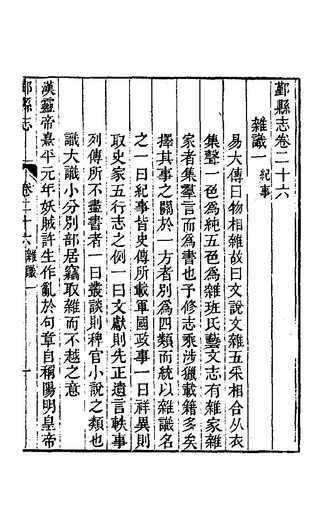 鄞縣志卷二十六
雜識一 紀事
易大傳曰物相雜故曰文說文雜五采相合从衣
集聲一色爲純五色爲雜班氏藝文志有雜家雜
家者集羣言而爲書也予修志乘涉獵載籍多矣
擇其事之關於一方者別爲四類而統以雜識名
之一曰紀事皆史傳所載軍國政事一曰祥異則
取史家五行志之例一曰文獻則先正遺言軼事
列傳所不盡書者一曰叢談則稗官小說之類也
識大識小分別部居竊取雜而不越之意
漢靈帝熹平元年妖賊許生作亂於句章自稱陽明皇帝
鄞縣志
卷二十六 雜識一
一